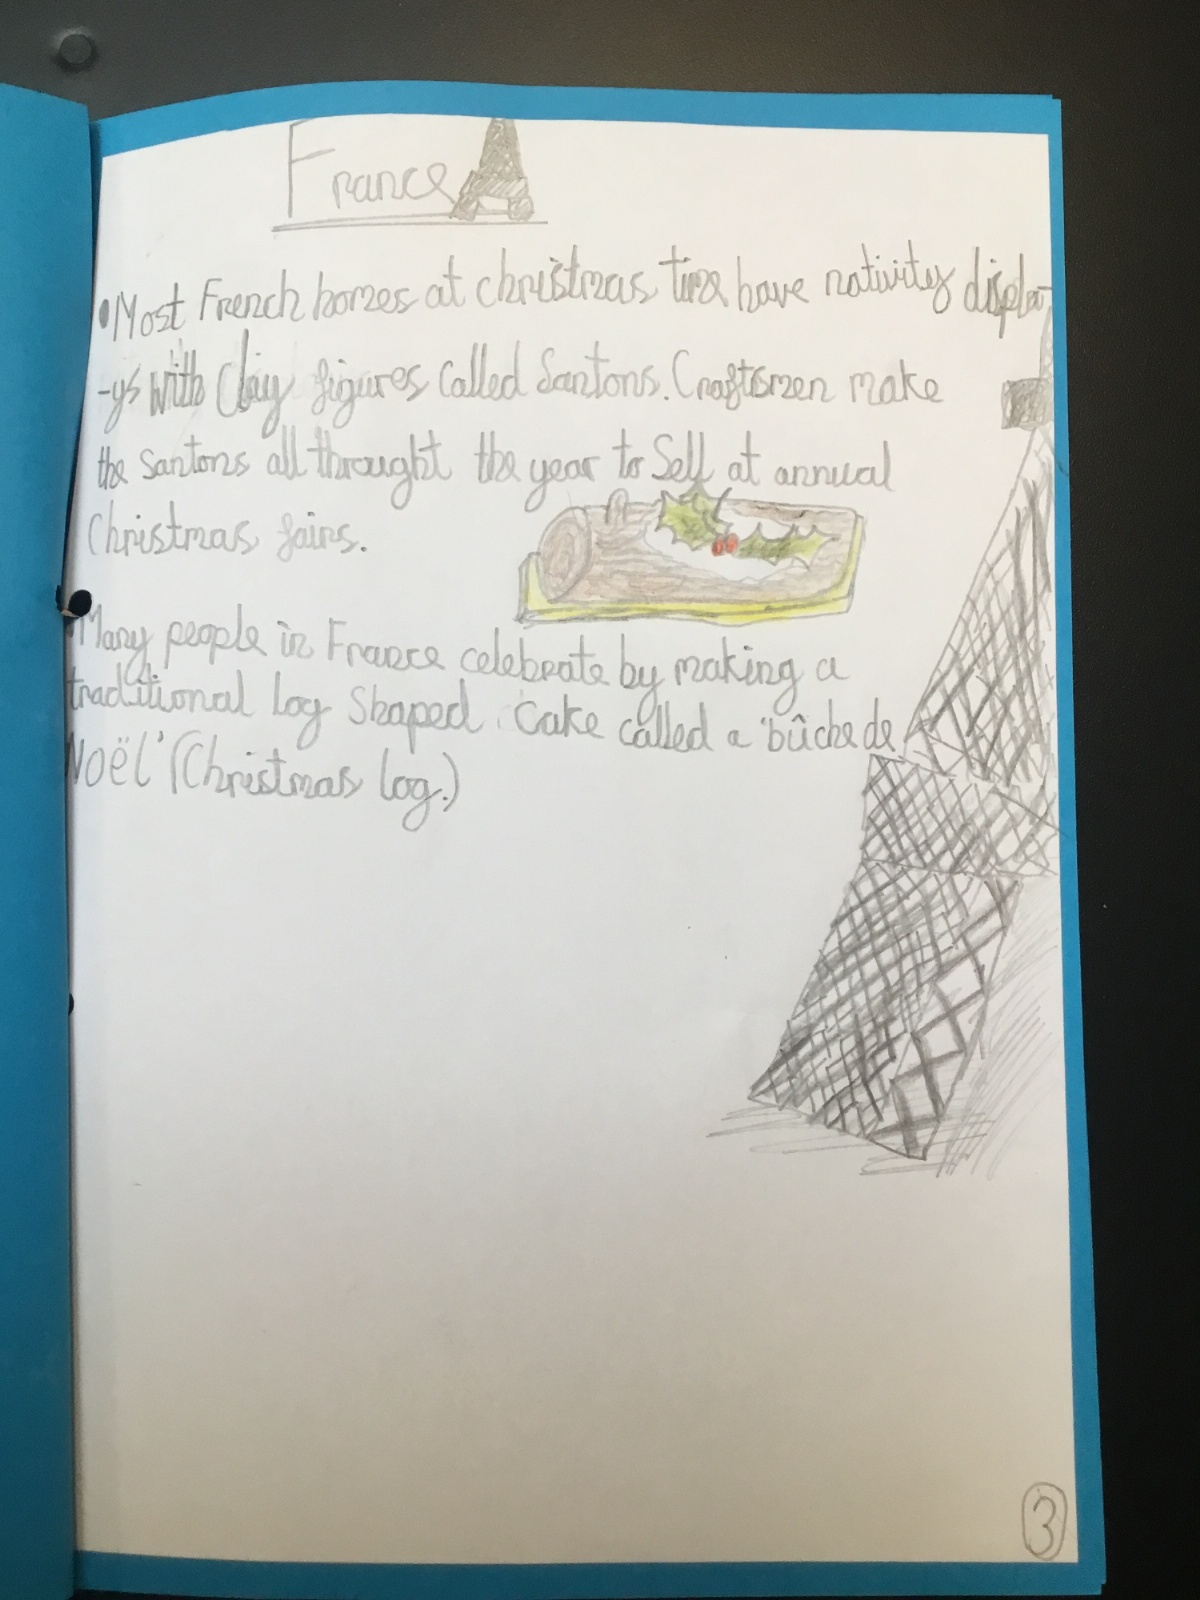 France
•Most French homes at christmas time have nativity displa-
-ys with Clay figures Called Santons. Craftsmen make
the santons all throught the year to Sell at annual
Christmas fairs.
•Many people in France celebrate by making a
traditional log Shaped Cake called a 'bûche de
Noël' (Christmas log.)
3